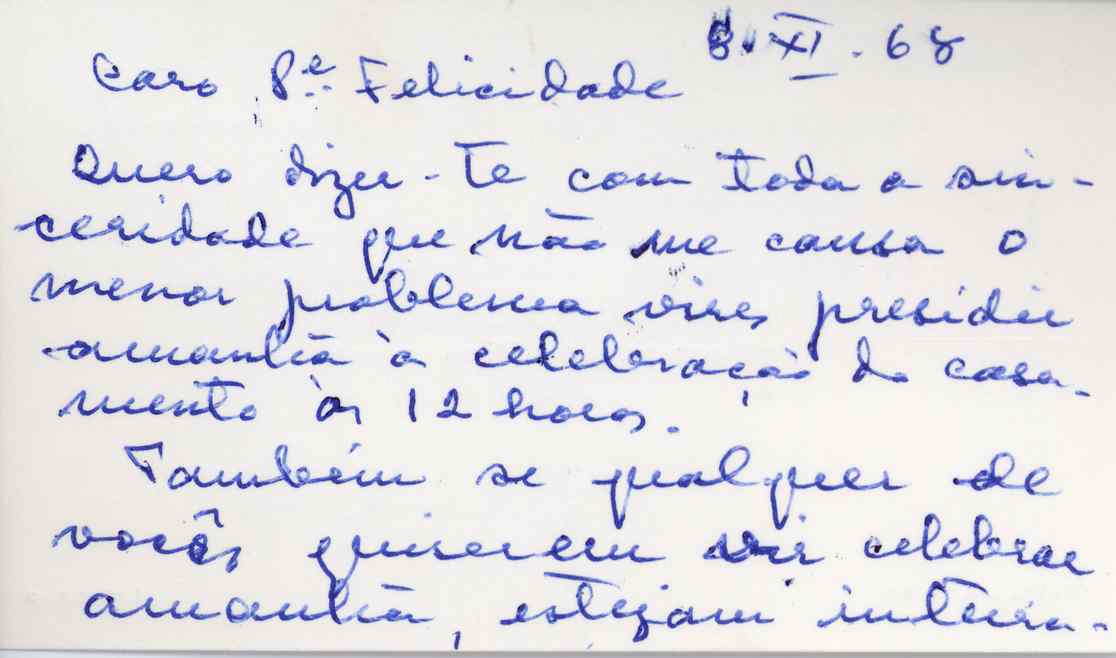 8.XI.68
Caro P.e Felicidade
Quero dizer-te com toda a sin-
ceridade que não me causa o
menor problema vires presidir
amanhã à celebração do casa-
mento às 12 horas.
Também se qualquer de
vocês quiserem vir celebrar
amanhã, estejam inteira-